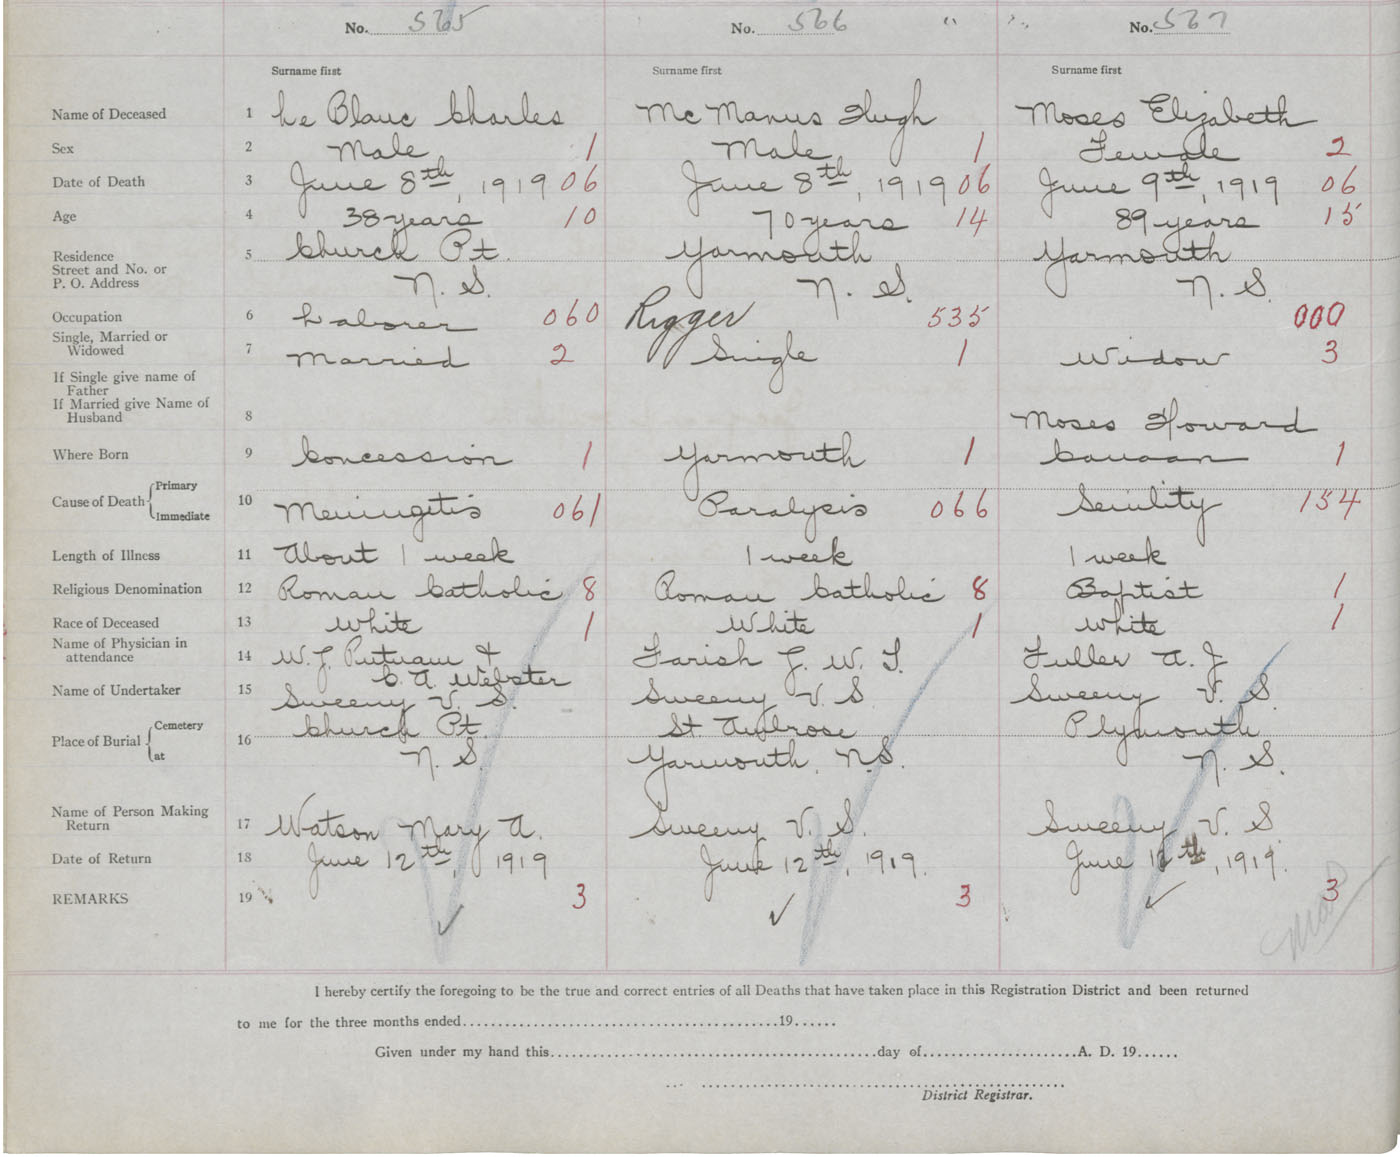 No. 565 No. 566 " " No. 567
Surname first Surname first Surname first
Name of Deceased 1 Le Blanc Charles Mc Manus Hugh Moses Elizabeth
Sex 2 Male 1 Male 1 Female 2
Date of Death 3 June 8th, 1919 06 June 8th, 1919 06 June 9th, 1919 06
Age 4 38 years 10 70 years 14 89 years 15
Residence 5 Church Pt. Yarmouth Yarmouth
Street and No. or
P. O. Address N. S. N. S. N. S.
Occupation 6 Laborer 060 Rigger 535 000
Single, Married or
Widowed 7 Married 2 Single 1 Widow 3
If Single give name of
Father
If Married give Name of
Husband 8 Moses Howard
Where Born 9 Concession 1 Yarmouth 1 Canaan 1
Cause of Death Primary
Immediate 10 Meningitis 061 Paralysis 066 Senility 154
Length of Illness 11 About 1 week 1 week 1 week
Religious Denomination 12 Roman Catholic 8 Roman Catholic 8 Baptist 1
Race of Deceased 13 White 1 White 1 White 1
Name of Physician in
attendance 14 W. J. Putnam & Farish J. W. T. Fuller A. J
C. A. Webster
Name of Undertaker 15 Sweeny V. S. Sweeny V. S Sweeny V. S
Place of Burial Cemetery
at 16 Church Pt. St Ambrose Plymouth
N. S. Yarmouth, N.S. N. S.
Name of Person Making
Return 17 Watson Mary A. Sweeny V. S. Sweeny V. S
Date of Return 18 June 12th, 1919 June 12th, 1919. June 12th, 1919.
REMARKS 19 3 3 3
I hereby certify the foregoing to be the true and correct entries of all Deaths that have taken place in this Registration District and been returned
to me for the three months ended 19......
Given under my hand this day of A. D. 19......
District Registrar.